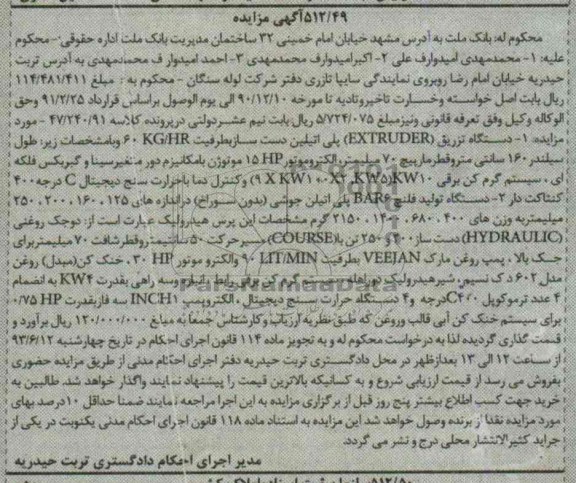 ۵۱۲/۴۹آگهی مزایده
محکوم له: بانک ملت به آدرس مشهد خیابان امام خمینی ۳۲ ساختمان مدیریت بانک ملت اداره حقوقی-محکوم
علیه: ۱- محمدمهدی امیدوارف علی ۲- اکبرامیدوارف محمدمهدی ۳- احمد امیدوار ف محمدمهدی به آدرس تربت
حیدریه خیابان امام رضا روبروی نمایندگی سایپا تازری دفتر شرکت لوله سنگان - محکوم به : مبلغ ۱۱۴/۴۸۱/۴۱۱
ریال بابت اصل خواسته وخسارت تاخیروتادیه تا مورخه ۹۰/۱۲/۱۰ الی یوم الوصول براساس قرارداد ۹۱/۲/۲۵ وحق
الوکاله وکیل وفق تعرفه قانونی ونیزمبلغ ۵/۷۲۴/۰۷۵ ریال بابت نیم عشردولتی درپرونده کلاسه ۴۷/۲۴۰/۹۱ - مورد
مزایده: ۱- دستگاه تزریق (EXTRUDER) پلی اتیلین دست سازبظرفیت ۶۰ KG/HR وبامشخصات زیر: طول
سیلندر۱۶۰ سانتی متروقطرمارپیچ ۷۰ میلیمتر، الکتروموتور ۱۵ HP موتوژن بامکانیزم دور متغیرسینا و گیربکس فلکه
ای ، سیستم گرم کن برقی KW۱۰ (KW۵، ۱۰۰X۲ ۹ X KW۱) وکنترل دما باحرارت سنج دیجیتال C درجه۴۰۰
کنتاکت دار ۲- دستگاه تولید فلنچ BAR۶ پلی اتیلن جوشی (بدون سوراخ) دراندازه های ۱۲۵ ، ۱۶۰ ، ۲۰۰ ، ۲۵۰
میلیمتربه وزن های ۴۰۰ ، ۶۸۰ ، ۱۴۰۰ ، ۲۱۵۰ گرم مشخصات این پرس هیدرولیک عبارت است از: دوجک روغنی
(HYDRAULIC) دست ساز ۲۰۰ و ۲۵۰ تن با(COURSE) مسیرحرکت ۵۰ سانتیمتروقطرشافت ۷۰ میلیمتربرای
جک بالا ، پمپ روغن مارک VEEJAN بظرفیت ۹۰ LIT/MIN والکترو موتور ۳۰ HP ، خنک کن(مبدل) روغن
مدل ۶۰۲ د ک نسیم، شیرهیدرولیک دوراهه سیستم گرم کن برقی رابط رانیلروسه راهی بقدرت KW۴ به انضمام
۴ عدد ترموکوپل C۴۰۰درجه و۴ دستگاه حرارت سنج دیجیتال ، الکتروپمپ INCH۱ سه فازبقدرت ۰/۷۵ HP
برای سیستم خنک کن آبی قالب وروغن که طبق نظریه ارزیاب وکارشناس جمعا به مبلغ ۱۲۰/۰۰۰/۰۰۰ ریال برآورد و
قیمت گذاری گردیده لذا به درخواست محکوم له و به تجویز ماده ۱۱۴ قانون اجرای احکام در تاریخ چهارشنبه ۹۳/۶/۱۲
از ساعت ۱۲ الی ۱۳ بعدازظهر در محل دادگستری تربت حیدریه دفتر اجرای احکام مدنی از طریق مزایده حضوری
بفروش می رسد از قیمت ارزیابی شروع و به کسانیکه بالاترین قیمت را پیشنهاد نمایند واگذار خواهد شد. طالبین به
خرید جهت کسب اطلاع بیشتر پنج روز قبل از برگزاری مزایده به این اجرا مراجعه نمایند ضمنا حداقل ۱۰درصد بهای
مورد مزایده نقدا از برنده وصول خواهد شد این مزایده به استناد ماده ۱۱۸ قانون اجرای احکام مدنی یکنوبت در یکی از
جراید کثیرالانتشار محلی درج و نشر می گردد.
مدیر اجرای احکام دادگستری تربت حیدریه